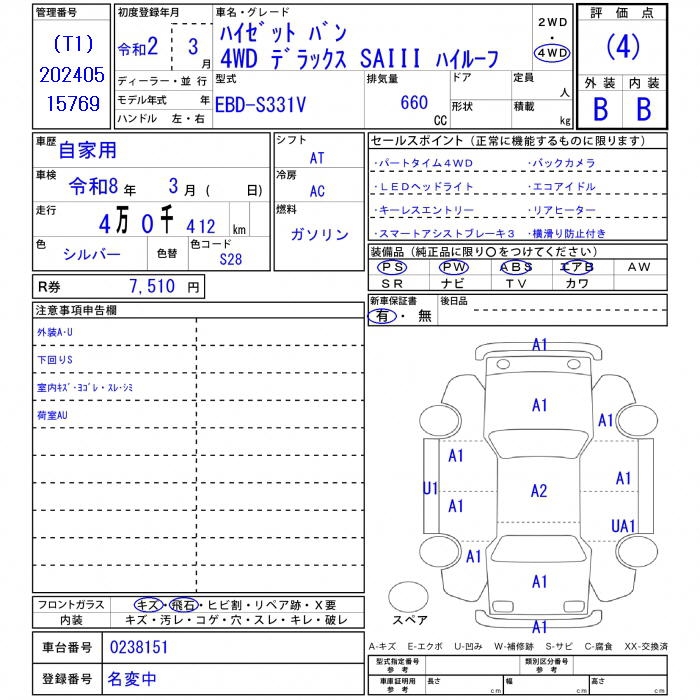 管理番号
(T1)
202405
15769
初度登録年月
令和2 3月
ディーラー・並行
モデル年式 年
ハンドル 左・右
車名・グレード
ハイゼット バン
4WD デラックス SAIII ハイルーフ
2WD
・
4WD
型式
EBD-S331V
排気量
660
CC
ドア
形状
定員
人
積載
kg
評価点
(4)
外装 内装
B B
車歴
自家用
車検
令和8年 3月( 日)
走行
4万0千412km
色
シルバー
色替
色コード
S28
シフト
AT
冷房
AC
燃料
ガソリン
セールスポイント(正常に機能するものに限ります)
・パートタイム4WD ・バックカメラ
・LEDヘッドライト ・エコアイドル
・キーレスエントリー ・リアヒーター
・スマートアシストブレーキ3 ・横滑り防止付き
装備品(純正品に限り〇をつけてください)
PS PW ABS エアB AW
SR ナビ TV カワ
R券 7,510 円
新車保証書
有・無
後日品
注意事項申告欄
外装A・U
下回りS
室内キズ・ヨゴレ・スレ・シミ
荷室AU
A1
A1
A1
A1
A1
U1
A2
A1
A1
UA1
A1
A1
A1
スペア
フロントガラス キズ・飛石・ヒビ割・リペア跡・X要
内装 キズ・汚レ・コゲ・穴・スレ・キレ・破レ
車台番号 0238151
登録番号 名変中
A-キズ E-エクボ U-凹み W-補修跡 S-サビ C-腐食 XX-交換済
型式指定番号
参考
類別区分番号
参考
車庫証明用
参考
長さ cm 幅 cm 高さ cm